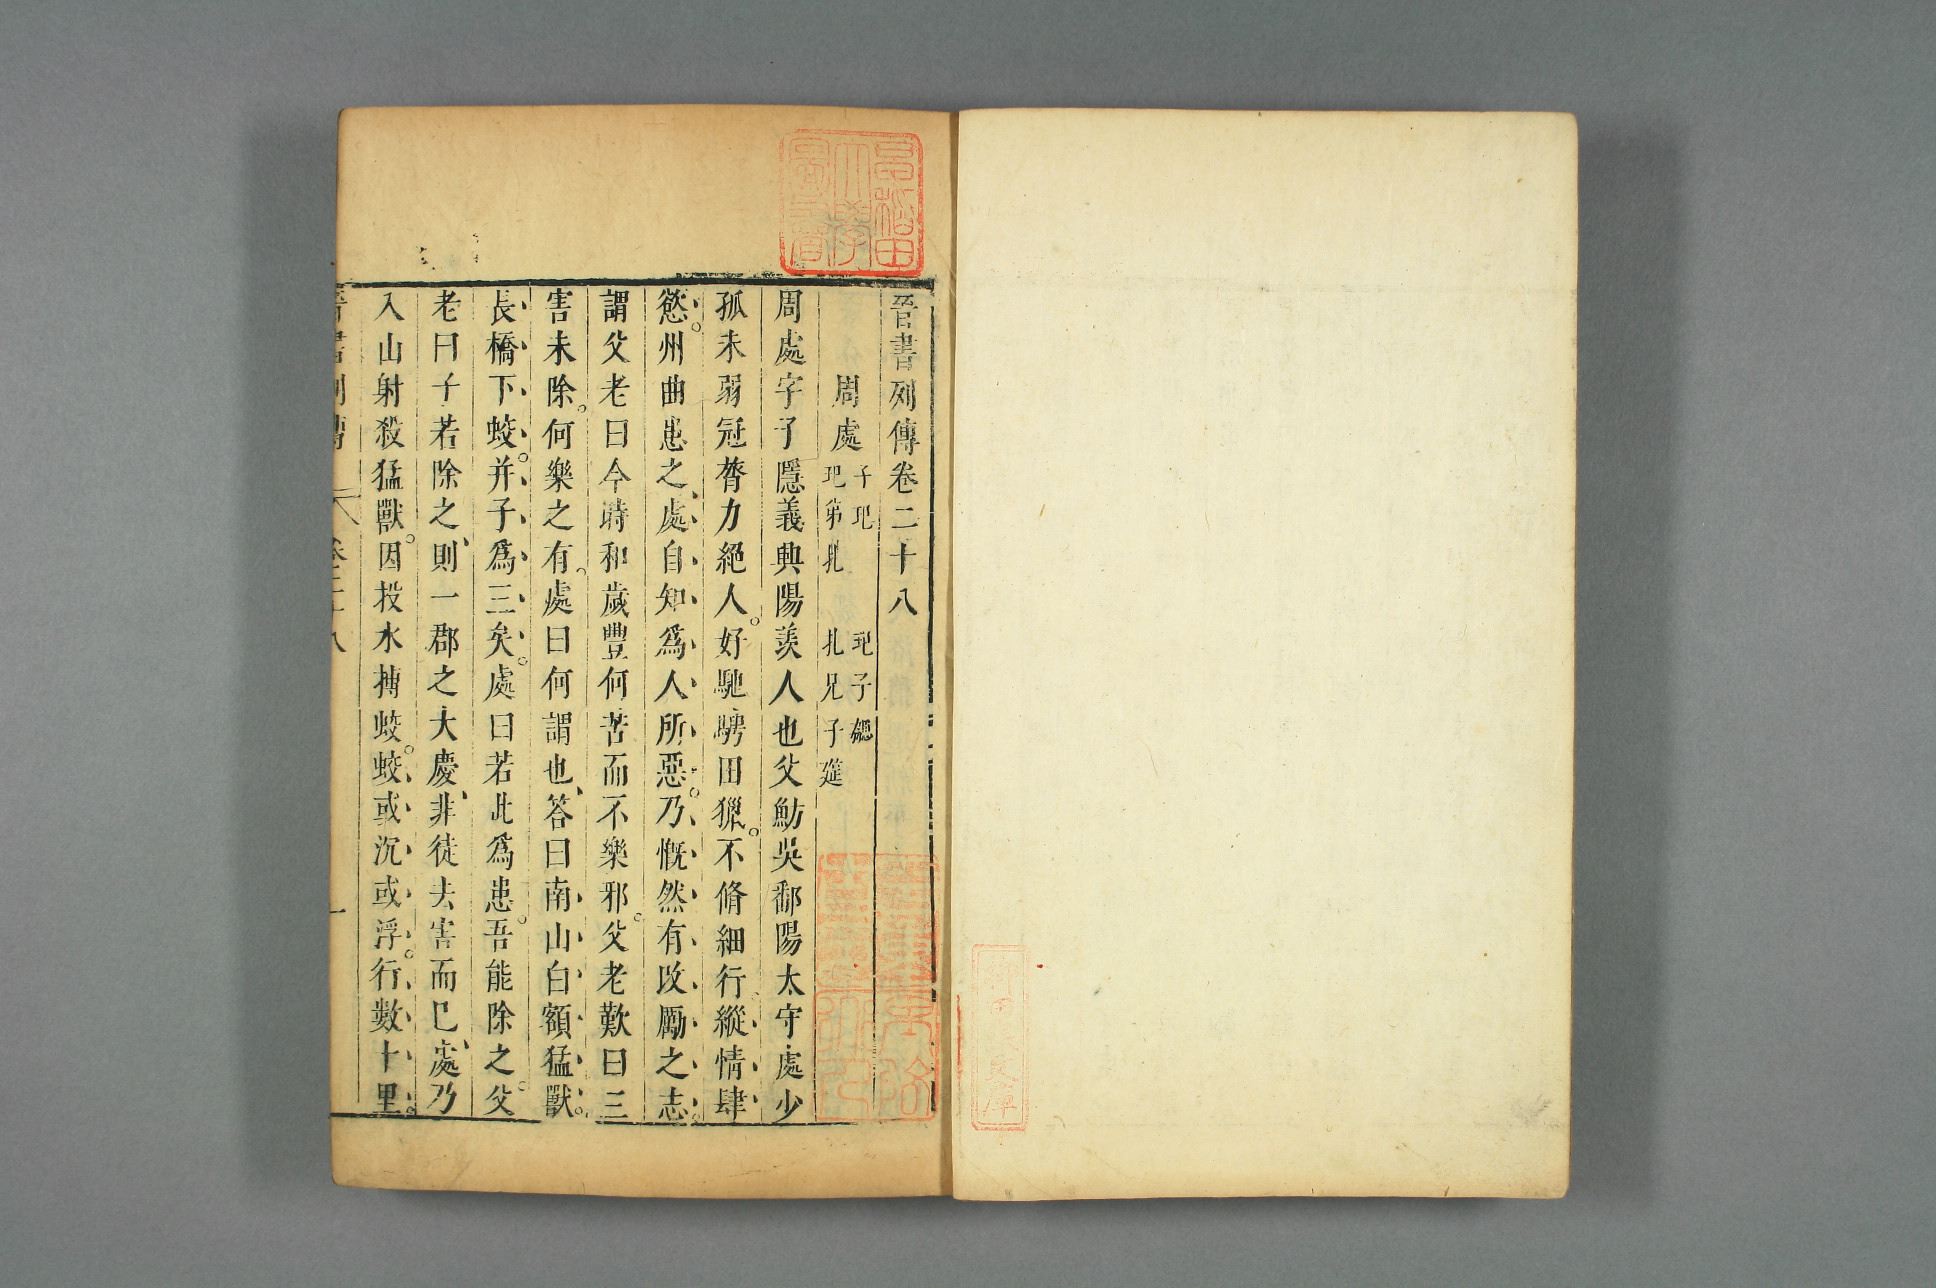 晉書列傳卷二十八
周處 子玘 玘子勰
玘弟札 札兄子莚
周處字子隱義興陽羨人也父魴吳鄱陽太守處少
孤未弱冠膂力絕人。好馳騁田獵。不脩細行縱情肆
慾。州曲患之、處自知爲人所惡。乃慨然有改勵之志。
謂父老曰今時和歲豐何苦而不樂邪。父老歎曰三
害未除。何樂之有。處曰何謂也、答曰南山白額猛獸。
長橋下蛟。并子爲三矣。處曰若此爲患。吾能除之。父
老曰子若除之、則一郡之大慶、非徒去害而已、處乃
入山射殺猛獸。因投水搏蛟。蛟或沉或浮。行數十里。
晉書列傳 卷二十八 一
早稻田大學圖書